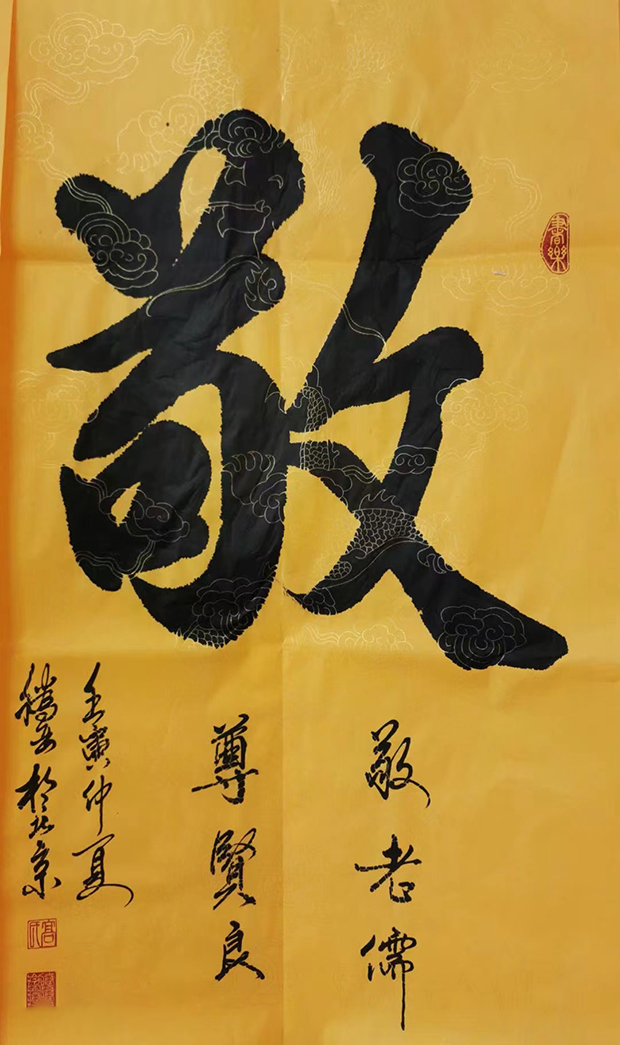 敬
書樂
敬老儒
尊賢良
壬寅仲夏
於北京
高氏